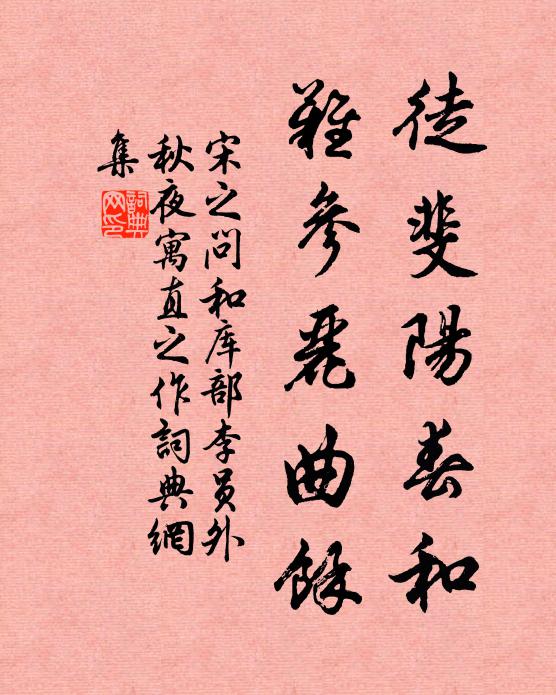 徒斐陽春和
難參麗曲餘
宋之問和库部李员外
秋夜寓直之作詞典網
集
詞典
网印